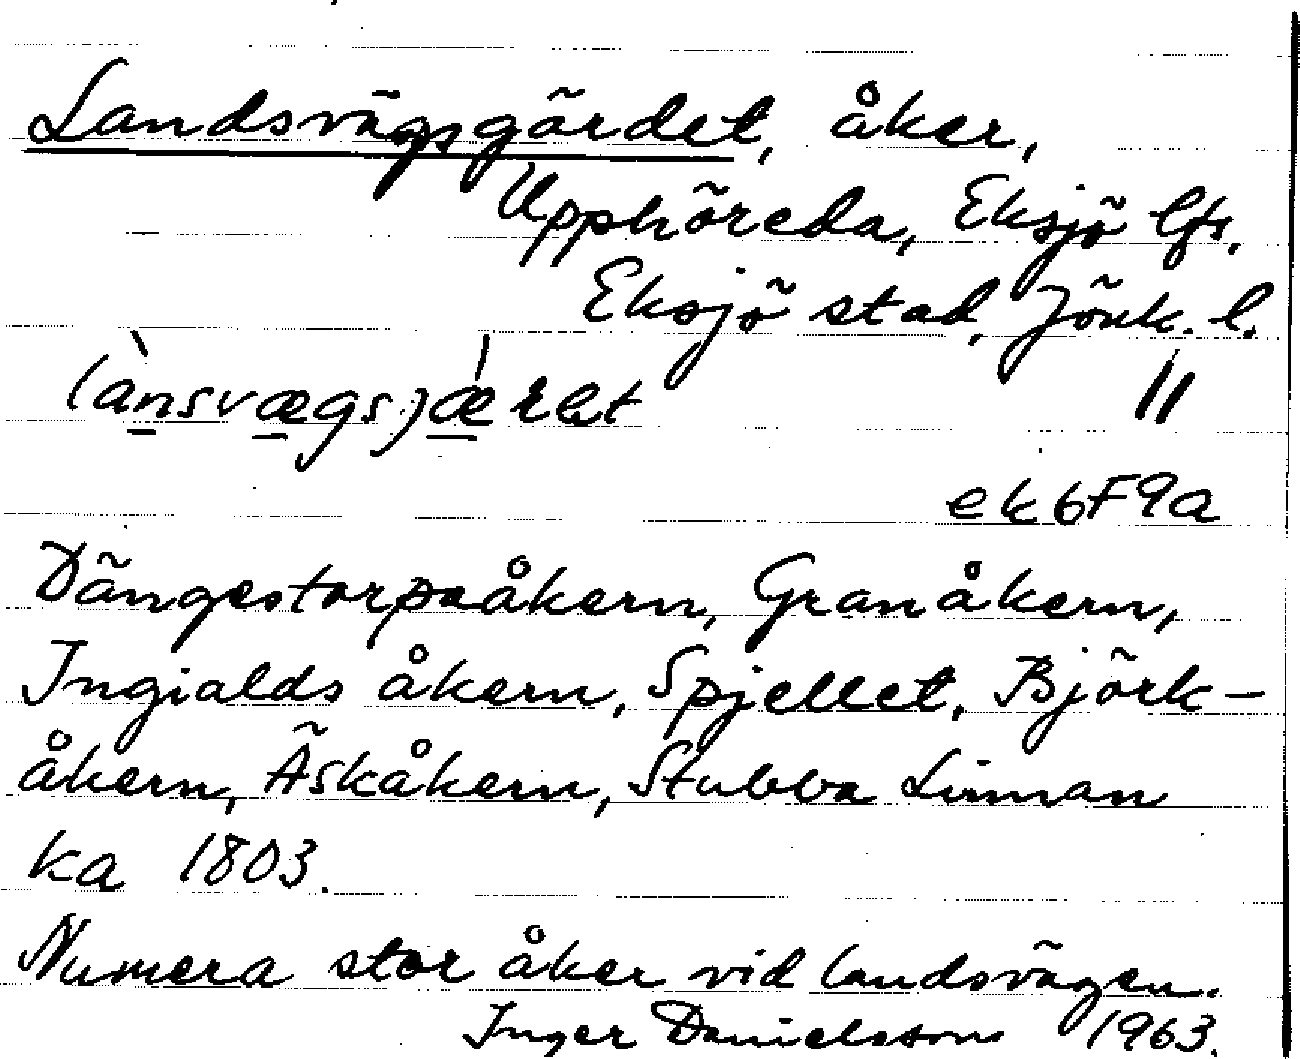 Landsvägsgärdet, åker,
Upphöreda, Eksjö lfs.
Eksjö stad, Jönk. l.
lànsvægsjæ̍ret
ek 6F9a
Dängestorpaåkern, Granåkern,
Ingialds åkern, Spjellet, Björk-
åkern, Äskåkern, Stubba Linnan
ka 1803.
Numera stor åker vid landsvägen.
Inger Danielsson 1963.